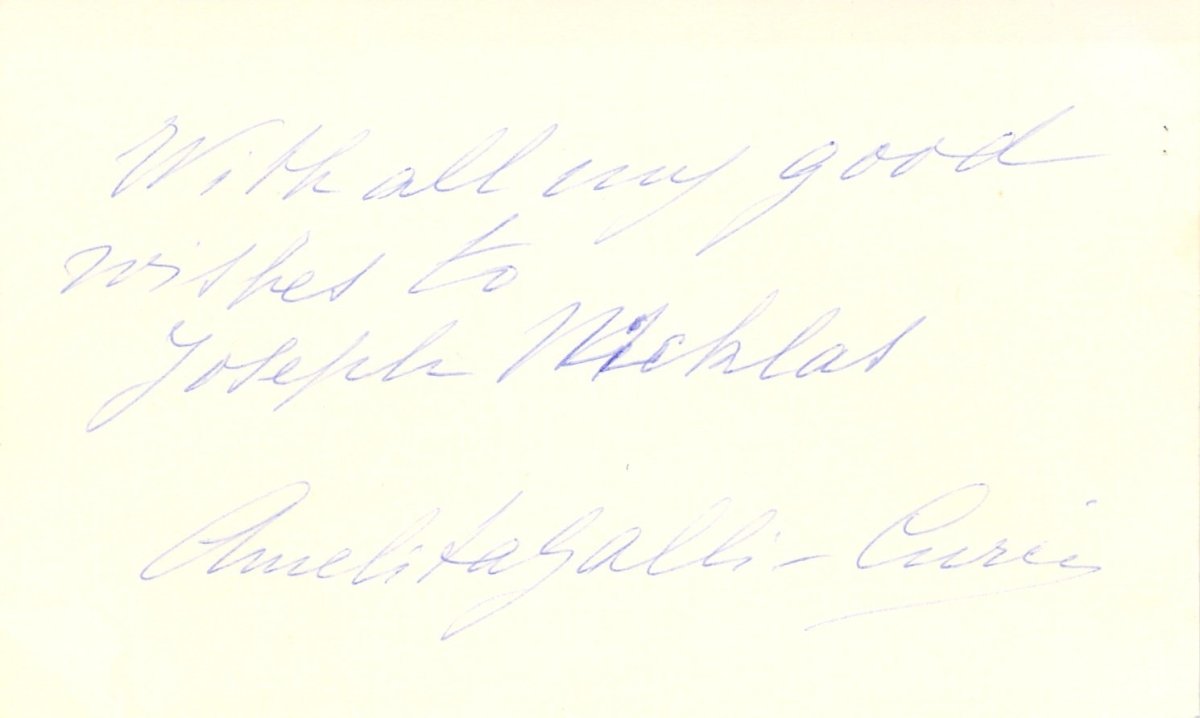 With all my good
wishes to
Joseph Nicklas
Amelita Galli-Curci